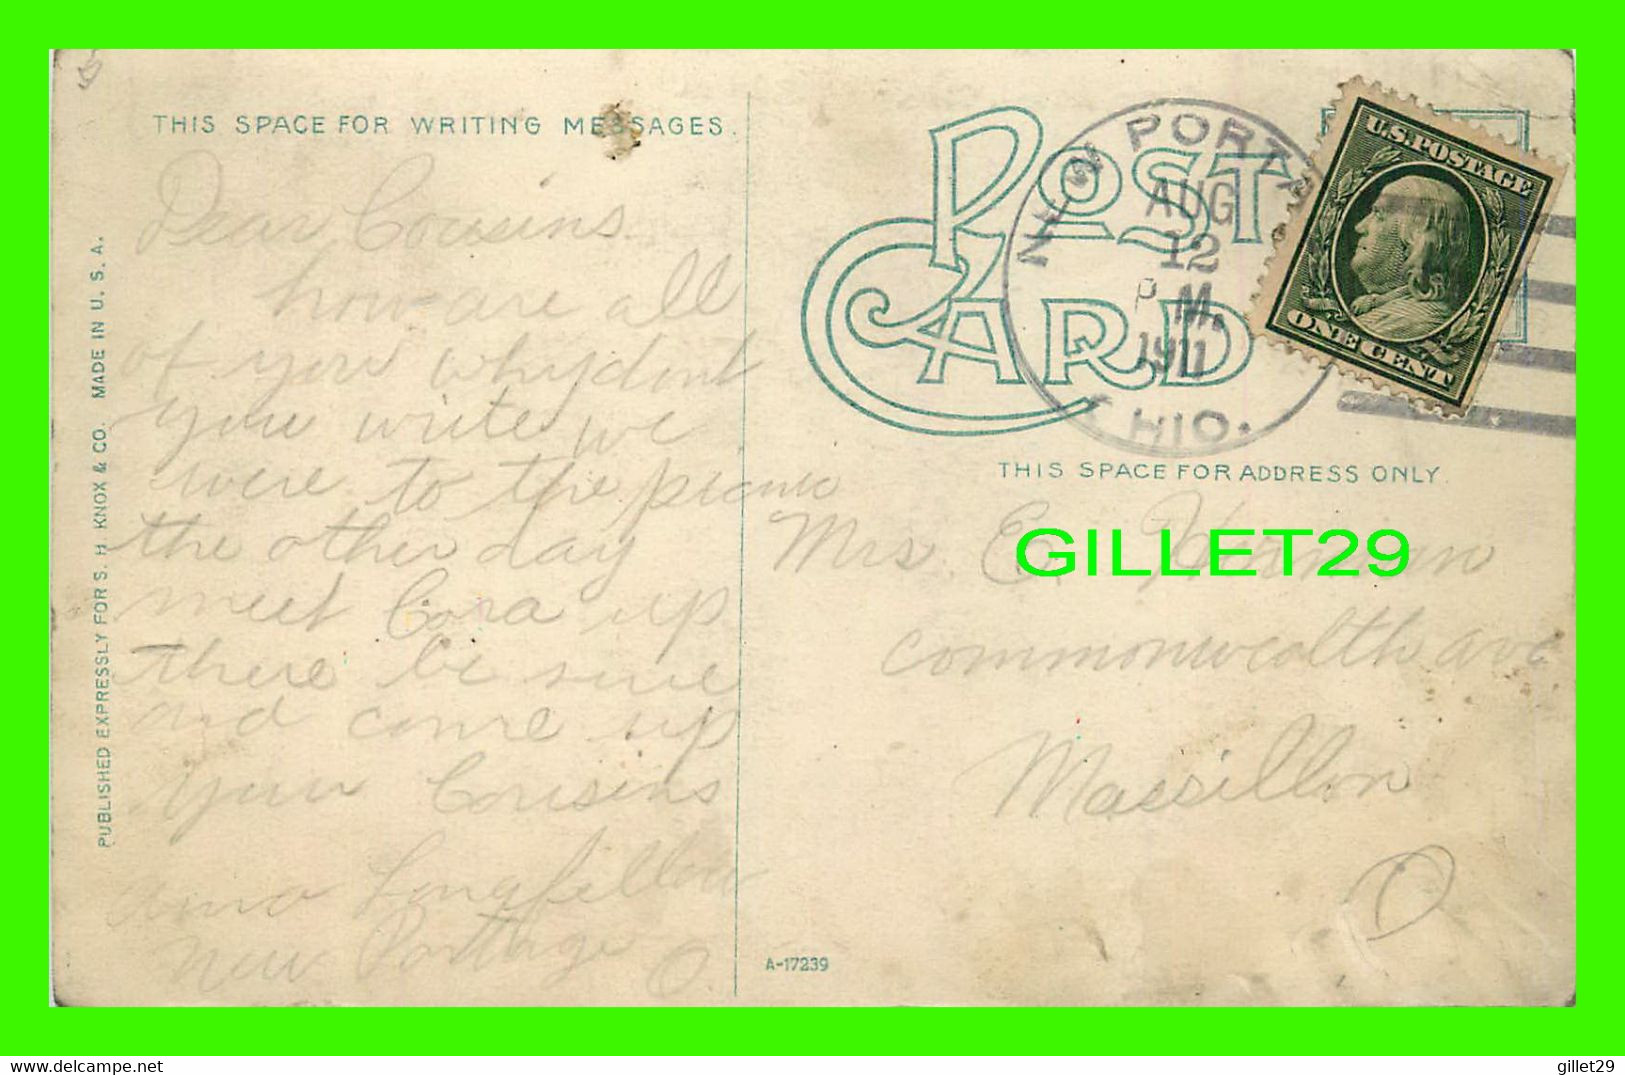 THIS SPACE FOR WRITING MESSAGES.
Dear Cousins
how are all
of you why dont
you write we
were to the picnic
the other day
meet Cora up
there be sure
and come up
your Cousins
Longfellow
New Portage O.
PUBLISHED EXPRESSLY FOR S. H. KNOX & CO. MADE IN U. S. A.
POST CARD
NEW PORTA
AUG
12
P M.
1911
OHIO.
U.S. POSTAGE
ONE CENT
THIS SPACE FOR ADDRESS ONLY.
GILLET29
Mrs. E.
commonwealth ave
Massillon
O
A-17239
delcampe.net
gillet29